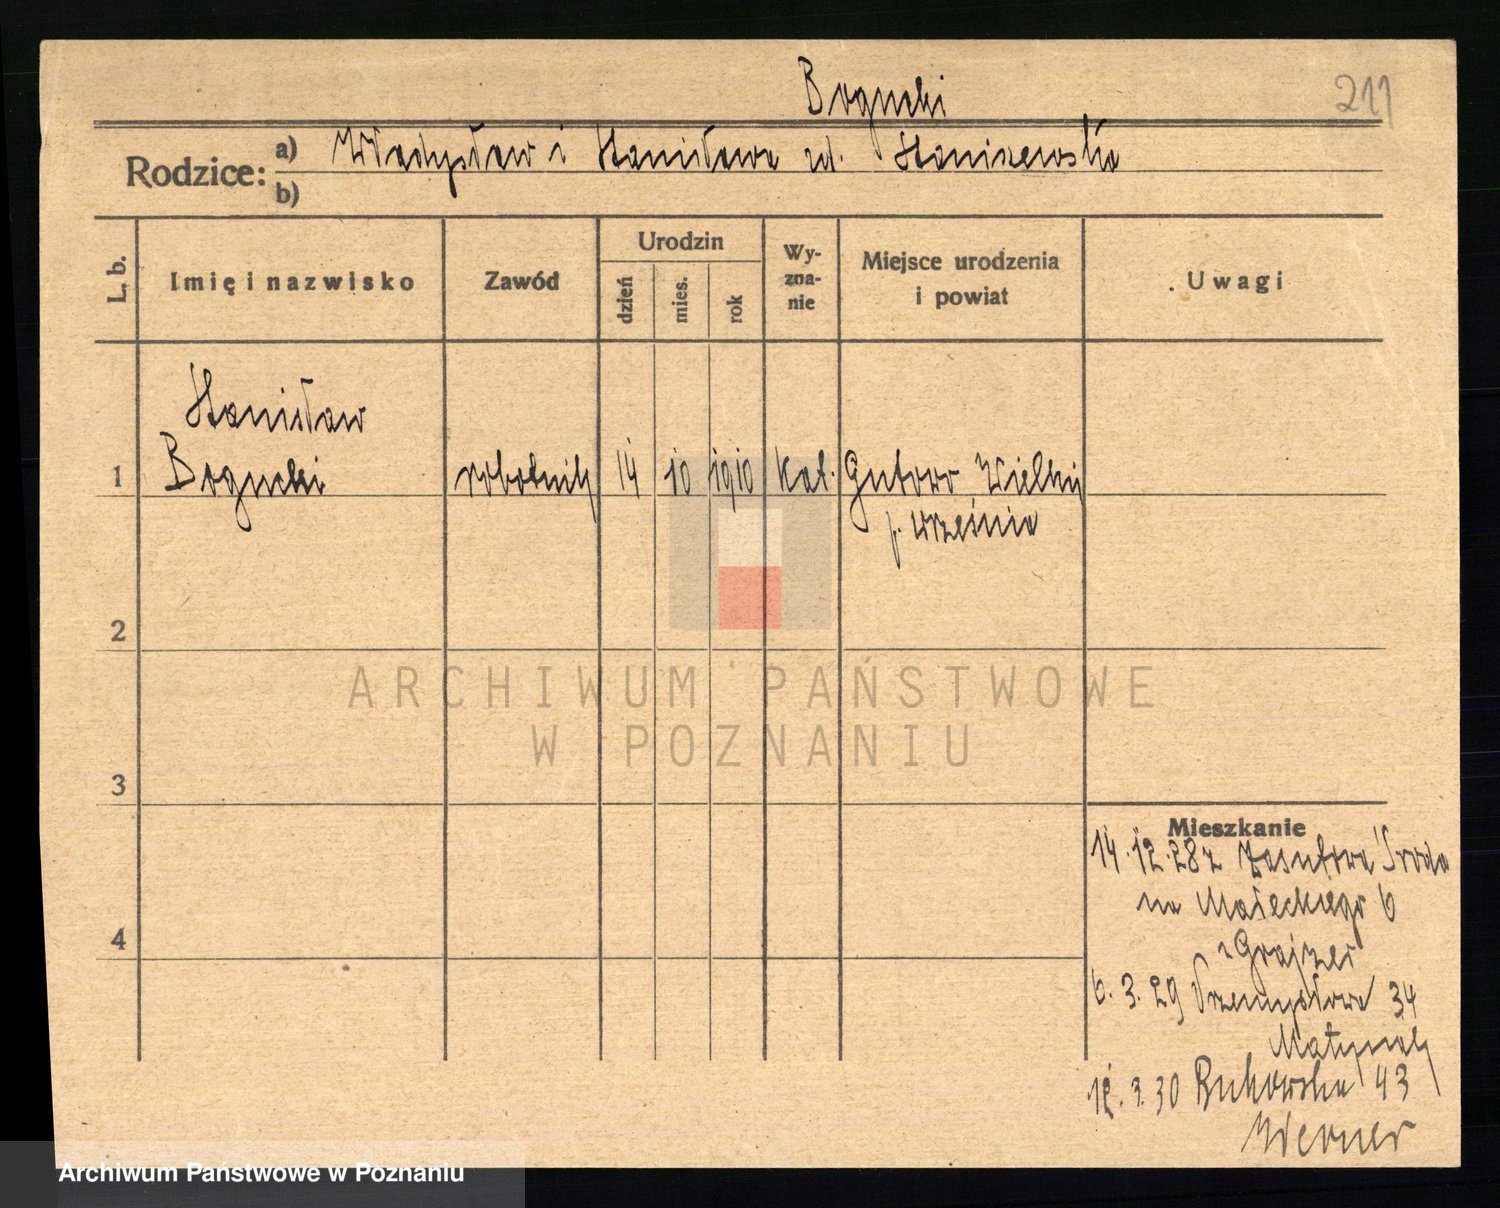 Bogucki
211
Rodzice: a) Władysław i Stanisława zd. Staniszewska
b)
L. b.
Imię i nazwisko
Zawód
Urodzin
dzień
mies.
rok
Wy-
zna-
nie
Miejsce urodzenia
i powiat
Uwagi
Stanisław
1 Bogucki robotnik 14 10 1910 kat. Gutowo Wielkij
p. Września
2
3
4
Mieszkanie
14.12.28 z Zasutowa Środa
na Małeckiego 6
z Grajzer
6.3.29 Przemysłowa 34
Matysiak
12.3.30 Bukowska 43
Werner
ARCHIWUM PAŃSTWOWE
W POZNANIU
Archiwum Państwowe w Poznaniu